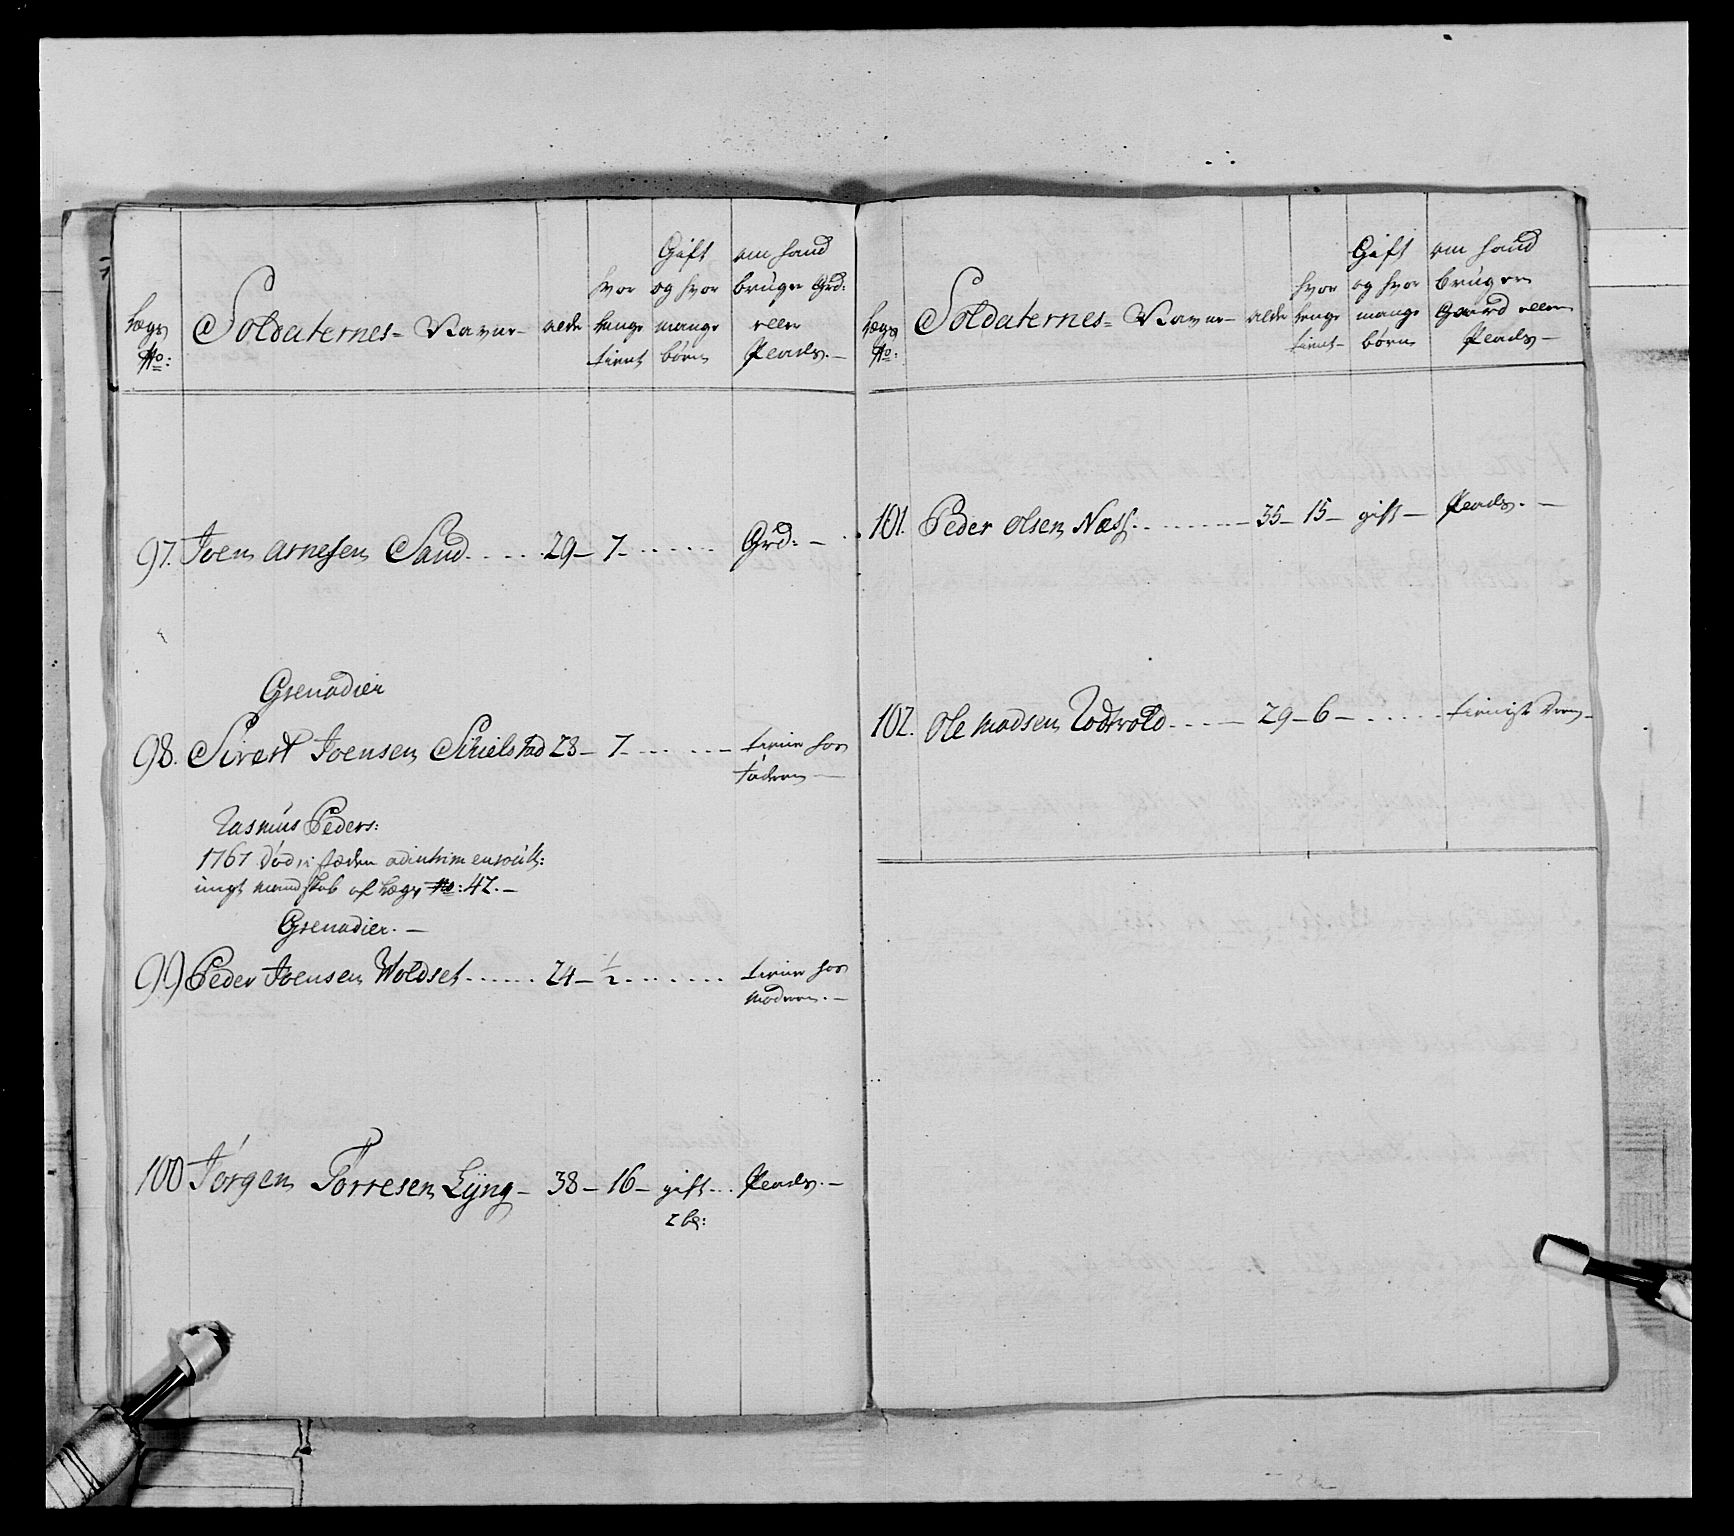 Lægs No: Soldaternes= Navne alder hvor lenge tient Gift og hvor mange børn om hand bruger Grd: eller Plads.
97. Joen Arnesen Sand 29 7 Grd:
Grenadier
98. Sivert Joensen Schielstad 28 7 tiener hos faderen
Rasmus Peders:
1767 død i steden ad interim enroull:
ungt mandskab af Lægs No: 42.
Grenadier.
99 Peder Joensen Woldset 24 ½ tiener hos moderen.
100 Jørgen Torresen Lÿng 38 16 gift Plads.
2 bø:
Lægs No: Soldaternes= Navne alder hvor lenge tient Gift og hvor mange børn om hand bruger Gaard eller Plads
101. Peder Olsen Næss 35 15 gift Plads.
102. Ole Madsen Rodvold 29 6 tieniste Dreng